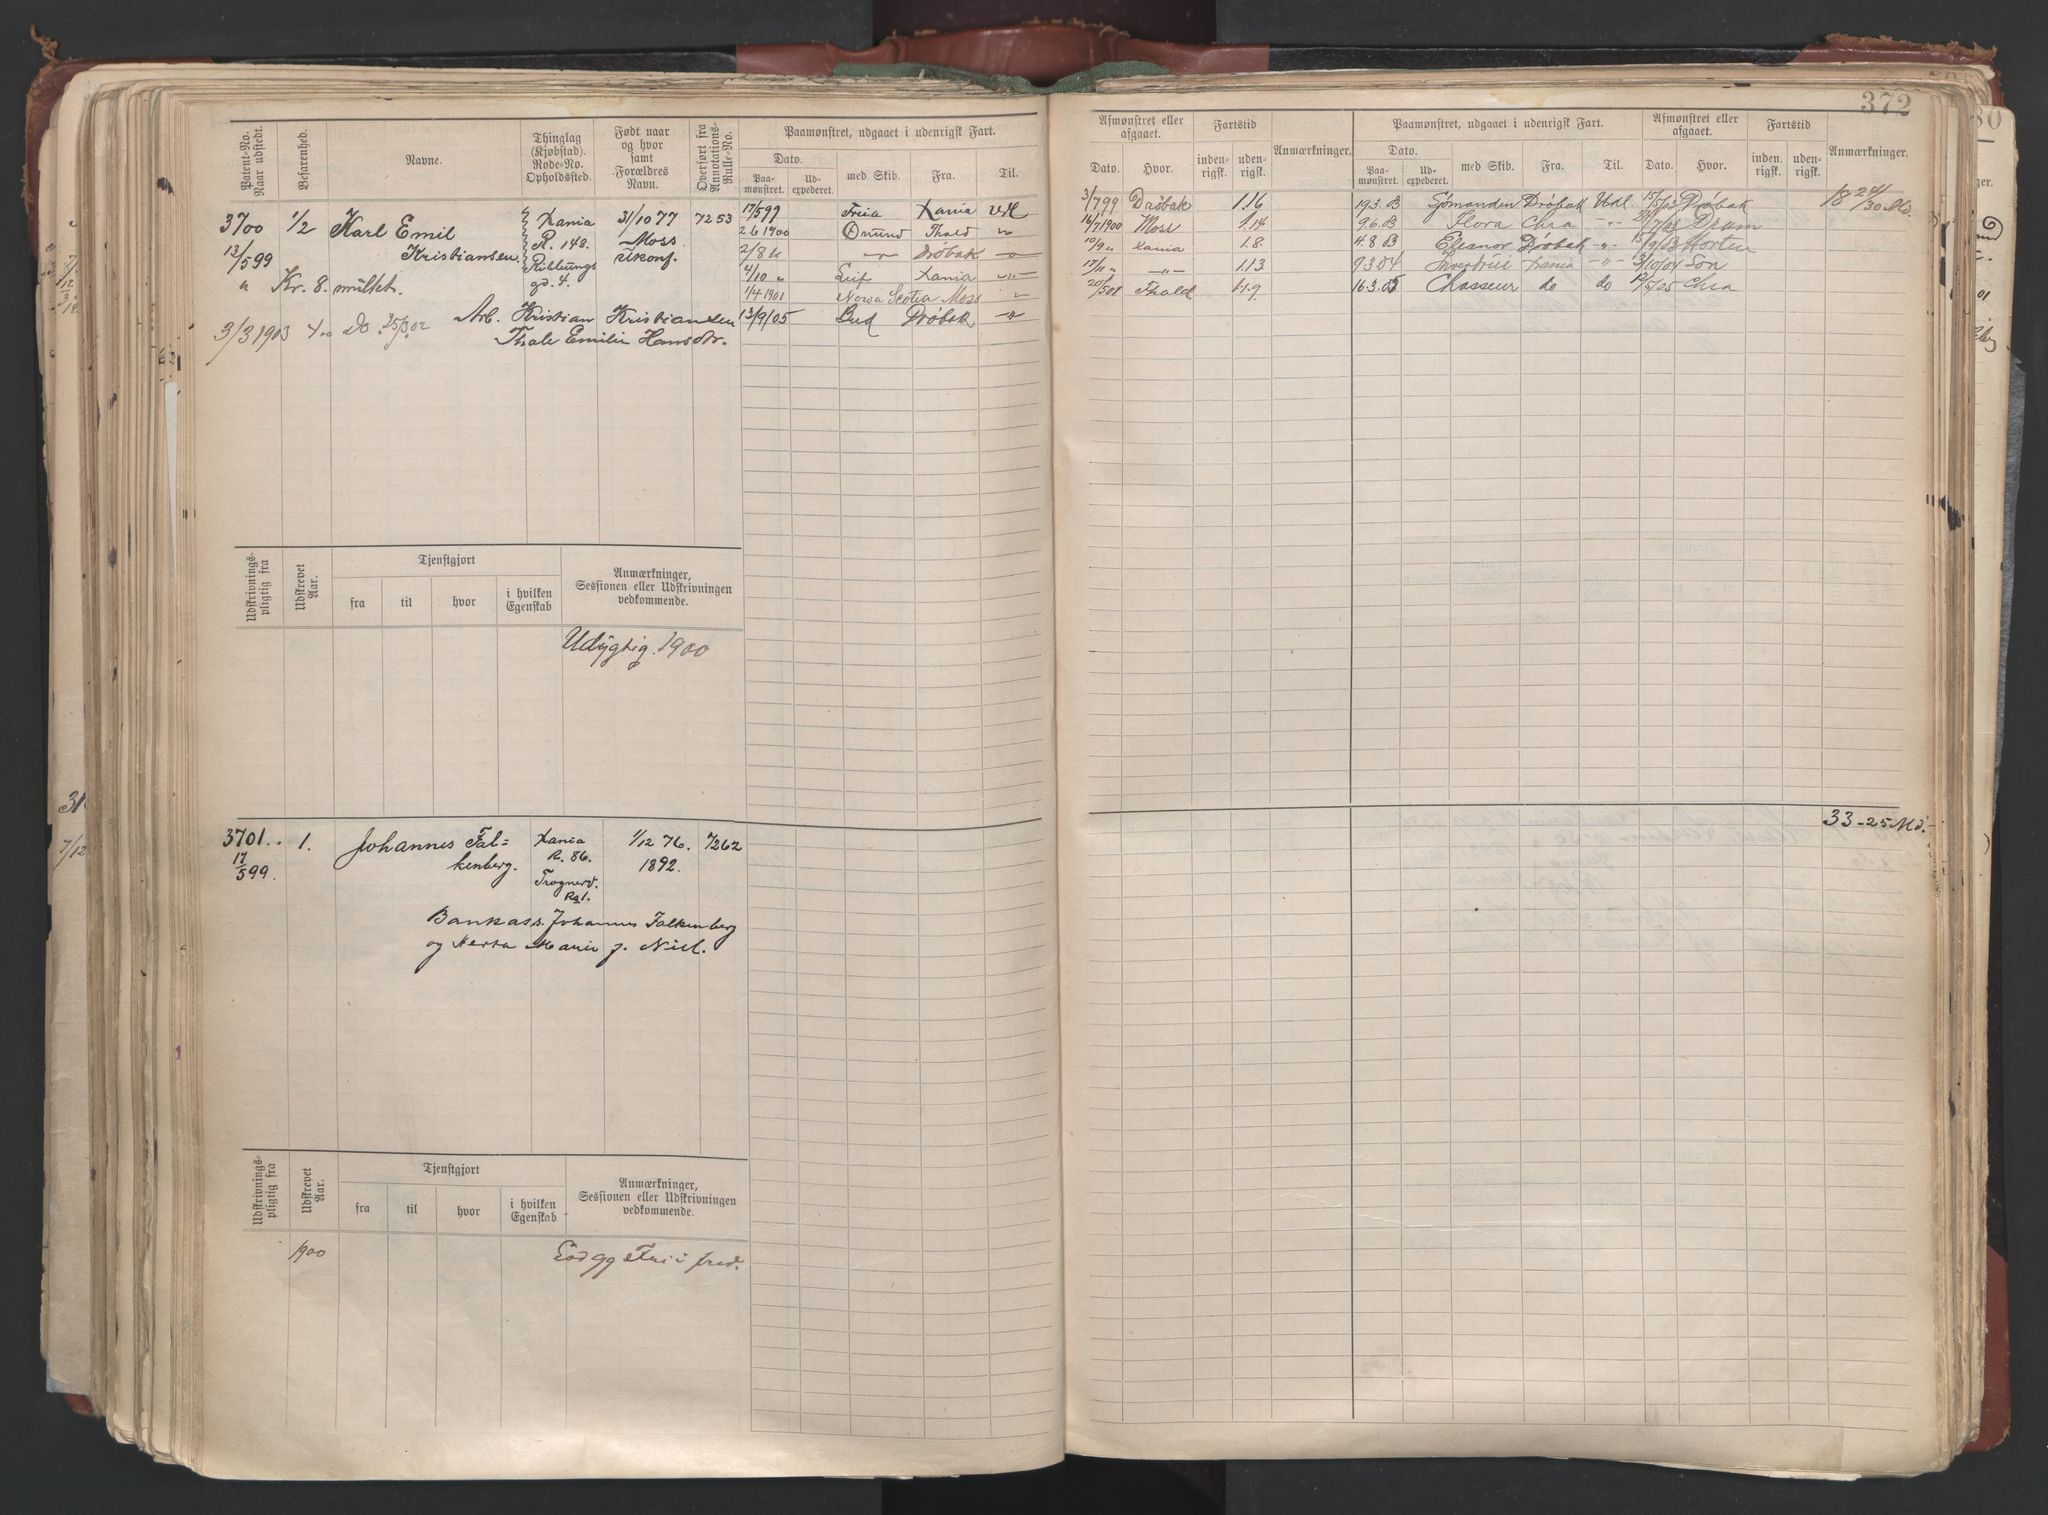 372
Patent-No. Naar udstedt.
Befarenhed.
Navne.
Thinglag (Kjøbstad). Rode-No. Opholdssted.
Født naar og hvor samt Forældres Navn.
Overført fra Annotations-Rulle-No.
Paamønstret, udgaaet i udenrigsk Fart.
Dato.
Paamønstret.
Udexpederet.
med Skib.
Fra.
Til.
3700 1/2 Karl Emil Xania 31/10 77 7253 17/5 99 Freia Xania Udl
13/5 99 Kristiansen R. 148. Moss 2 6 1900 Onund Fhald "
Ribbungs ukonf. 2/8 " " Drøbak "
" Kr. 8. mulkt. gd. 4. 4/10 " Leif Xania "
1/4 1901 Nova Scotia Moss "
3/3 1903 4oo do 25/3 02 Arb. Kristian Kristiansen 13/9/05 Bud Drøbak "
Thale Emilie Hansdtr.
Udskrivningspligtig fra
Udskrevet Aar.
Tjenstgjort
fra
til
hvor
i hvilken Egenskab
Anmærkninger, Sessionen eller Udskrivningen vedkommende.
Udygtig 1900
3701. 1. Johannes Fal- Xania 1/12 76. 7262
17/5 99. kenberg. R. 86. 1892.
Trognerv.
Bankass. Johannes Falkenberg
og Marie f. Niel.
Udskrivningspligtig fra
Udskrevet Aar.
Tjenstgjort
fra
til
hvor
i hvilken Egenskab
Anmærkninger, Sessionen eller Udskrivningen vedkommende.
1900
Afmønstret eller afgaaet.
Dato.
Hvor.
Fartstid
indenrigsk.
udenrigsk.
Anmærkninger.
Paamønstret, udgaaet i udenrigsk Fart.
Dato.
Paamønstret.
Udexpederet.
med Skib.
Fra.
Til.
Afmønstret eller afgaaet.
Dato.
Hvor.
Fartstid
inden. rigsk.
udenrigsk.
Anmærkninger.
3/7 99 Drøbak 1.16 19.3.03 Sømanden Drøbak Udl 15/5/03 Drøbak 18 24/30 Md.
16/7 1900 Moss 1.14 9.6.03 Flora Chra " Dram
10/9 " Xania 1.8. 4.8.03 Eleanor Drøbak " 15/9/03 Horten
17/11 " " 1.13. 9.3.04 Xania " 3/10/04 Son
20/5 01 Fhald 1.9 16.3.05 Chasseur do do 12/5/05 Chra
33 - 25 Md.